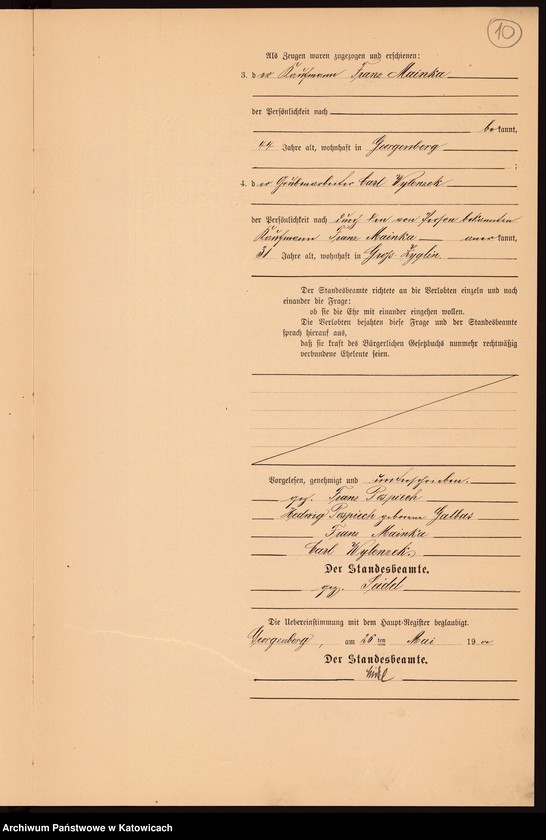 10
Als Zeugen waren zugezogen und erschienen:
3. der Kaufmann Franz Mainka
der Persönlichkeit nach
bekannt,
44 Jahre alt, wohnhaft in Georgenberg
;
4. der Grubenarbeiter Carl Wylenzek
der Persönlichkeit nach durch den von Person bekannten
Kaufmann Franz Mainka anerkannt,
51 Jahre alt, wohnhaft in Groß Zyglin.
Der Standesbeamte richtete an die Verlobten einzeln und nach
einander die Frage:
ob sie die Ehe mit einander eingehen wollen.
Die Verlobten bejahten diese Frage und der Standesbeamte
sprach hierauf aus,
daß sie kraft des Bürgerlichen Gesetzbuchs nunmehr rechtmäßig
verbundene Eheleute seien.
Vorgelesen, genehmigt und unterschrieben.
gez. Franz Pospiech
Hedwig Pospiech geborene Galbas
Franz Mainka
Carl Wylenzek.
Der Standesbeamte.
gez. Seidel
Die Uebereinstimmung mit dem Haupt-Register beglaubigt.
Georgenberg, am 26 ten Mai 1900
Der Standesbeamte.
Seidel
Archiwum Państwowe w Katowicach